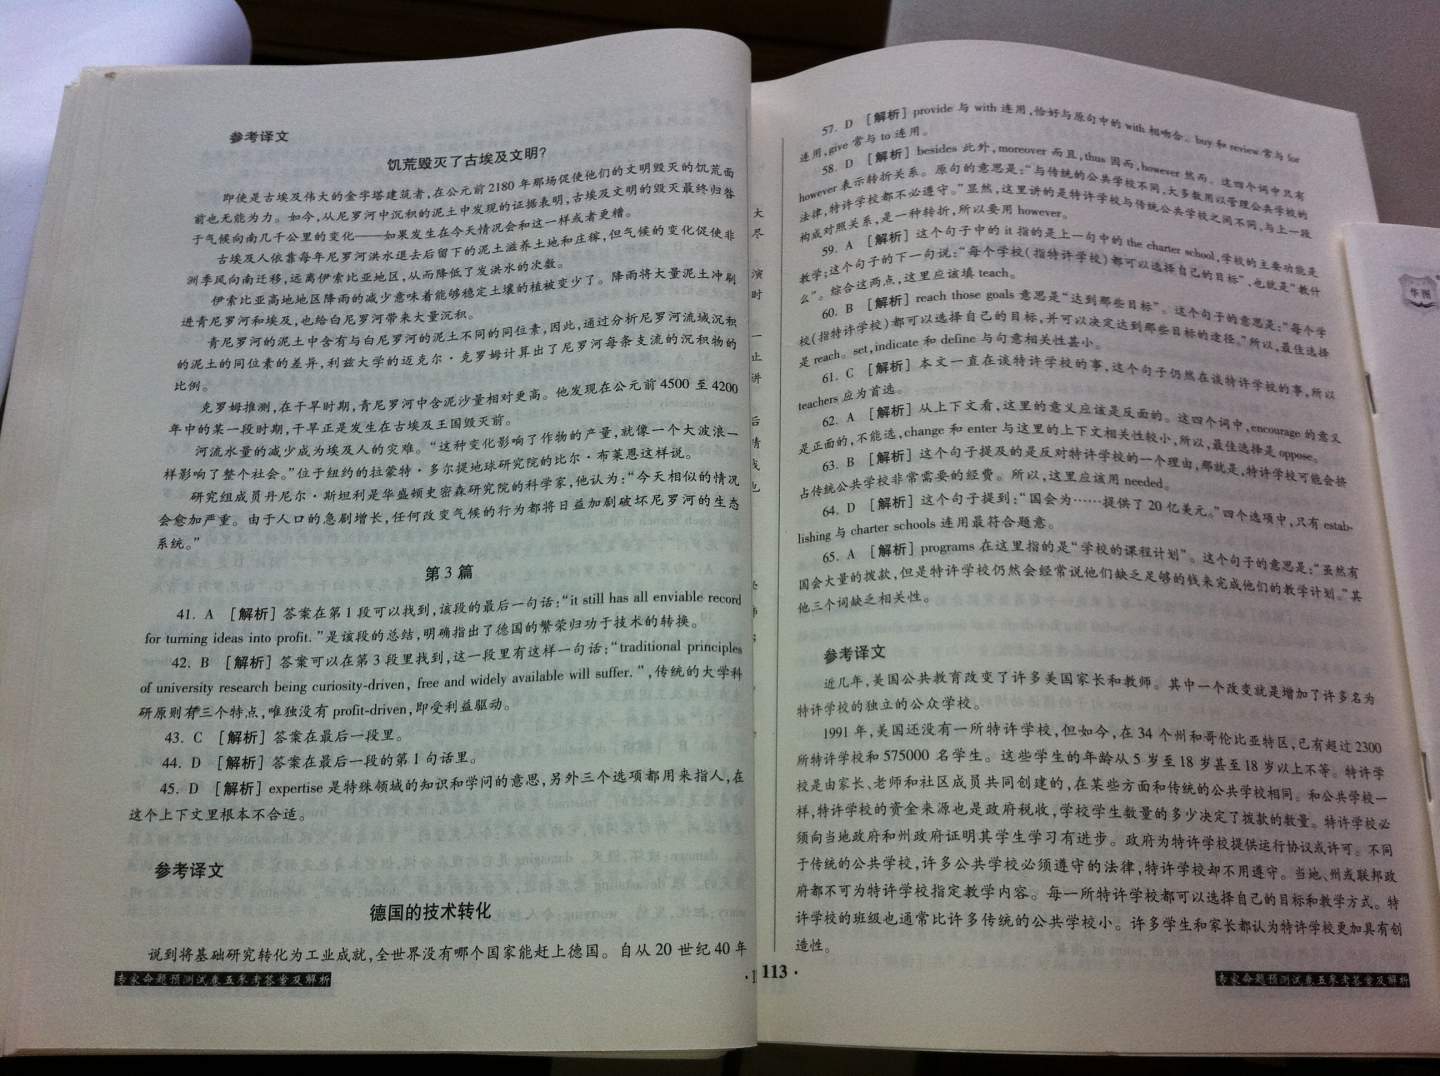 参考译文
饥荒毁灭了古埃及文明?
即使是古埃及伟大的金字塔建筑者,在公元前2180年那场促使他们的文明毁灭的饥荒面
前也无能为力。如今,从尼罗河中沉积的泥土中发现的证据表明,古埃及文明的毁灭最终归咎
于气候向南几千公里的变化——如果发生在今天情况会和这一样或者更糟。
古埃及人依靠每年尼罗河洪水退去后留下的泥土滋养土地和庄稼,但气候的变化促使非
洲季风向南迁移,远离伊索比亚地区,从而降低了发洪水的次数。
伊索比亚高地地区降雨的减少意味着能够稳定土壤的植被变少了。降雨将大量泥土冲刷
进青尼罗河和埃及,也给白尼罗河带来大量沉积。
青尼罗河的泥土中含有与白尼罗河的泥土不同的同位素,因此,通过分析尼罗河流域沉积
的泥土的同位素的差异,利兹大学的迈克尔·克罗姆计算出了尼罗河每条支流的沉积物的
比例。
克罗姆推测,在干旱时期,青尼罗河中含泥沙量相对更高。他发现在公元前4500 至4200
年中的某一段时期,干旱正是发生在古埃及王国毁灭前。
河流水量的减少成为埃及人的灾难。“这种变化影响了作物的产量,就像一个大波浪一
样影响了整个社会。”位于纽约的拉蒙特·多尔提地球研究院的比尔·布莱恩这样说。
研究组成员丹尼尔·斯坦利是华盛顿史密森研究院的科学家,他认为:“今天相似的情况
会愈加严重。由于人口的急剧增长,任何改变气候的行为都将日益加剧破坏尼罗河的生态
系统。”
第3篇
41. A [解析] 答案在第1段可以找到,该段的最后一句话:“it still has all enviable record
for turning ideas into profit.”是该段的总结,明确指出了德国的繁荣归功于技术的转换。
42. B [解析] 答案可以在第3段里找到,这一段里有这样一句话:“traditional principles
of university research being curiosity-driven, free and widely available will suffer.”,传统的大学科
研原则有三个特点,唯独没有 profit-driven,即受利益驱动。
43. C [解析] 答案在最后一段里。
44. D [解析] 答案在最后一段的第1句话里。
45. D [解析] expertise 是特殊领域的知识和学问的意思,另外三个选项都用来指人,在
这个上下文里根本不合适。
参考译文
德国的技术转化
说到将基础研究转化为工业成就,全世界没有哪个国家能赶上德国。自从20世纪40年
专家命题预测试卷五参考答案及解析
57. D [解析] provide 与 with 连用,恰好与原句中的 with 相吻合。buy 和 review 常与 for
连用,give 常与 to 连用。
58. D [解析] besides 此外,moreover 而且,thus 因而,however 然而。这四个词中只有
however 表示转折关系。原句的意思是:“与传统的公共学校不同,大多数用以管理公共学校的
法律,特许学校都不必遵守。”显然,这里讲的是特许学校与传统公共学校之间不同,与上一段
构成对照关系,是一种转折,所以要用 however。
59. A [解析] 这个句子中的 it 指的是上一句中的 the charter school,学校的主要功能是
教学;这个句子的下一句说:“每个学校(指特许学校)都可以选择自己的目标”,也就是“教什
么”。综合这两点,这里应该填 teach。
60. B [解析] reach those goals 意思是“达到那些目标”。这个句子的意思是:“每个学
校(指特许学校)都可以选择自己的目标,并可以决定达到那些目标的途径。”所以,最佳选择
是 reach。set,indicate 和 define 与句意相关性甚小。
61. C [解析] 本文一直在谈特许学校的事,这个句子仍然在谈特许学校的事,所以
teachers 应为首选。
62. A [解析] 从上下文看,这里的意义应该是反面的。这四个词中,encourage 的意义
是正面的,不能选,change 和 enter 与这里的上下文相关性较小,所以,最佳选择是 oppose。
63. B [解析] 这个句子提及的是反对特许学校的一个理由,那就是,特许学校可能会挤
占传统公共学校非常需要的经费。所以,这里应该用 needed。
64. D [解析] 这个句子提到:“国会为……提供了20亿美元。”四个选项中,只有 estab-
lishing 与 charter schools 连用最符合题意。
65. A [解析] programs 在这里指的是“学校的课程计划”。这个句子的意思是:“虽然有
国会大量的拨款,但是特许学校仍然会经常说他们缺乏足够的钱来完成他们的教学计划。”其
他三个词缺乏相关性。
参考译文
近几年,美国公共教育改变了许多美国家长和教师。其中一个改变就是增加了许多名为
特许学校的独立的公众学校。
1991年,美国还没有一所特许学校,但如今,在34个州和哥伦比亚特区,已有超过2300
所特许学校和575000名学生。这些学生的年龄从5岁至18岁甚至18岁以上不等。特许学
校是由家长、老师和社区成员共同创建的,在某些方面和传统的公共学校相同。和公共学校一
样,特许学校的资金来源也是政府税收,学校学生数量的多少决定了拨款的数量。特许学校必
须向当地政府和州政府证明其学生学习有进步。政府为特许学校提供运行协议或许可。不同
于传统的公共学校,许多公共学校必须遵守的法律,特许学校却不用遵守。当地、州或联邦政
府都不可为特许学校指定教学内容。每一所特许学校都可以选择自己的目标和教学方式。特
许学校的班级也通常比许多传统的公共学校小。许多学生和家长都认为特许学校更加具有创
造性。
113·
专家命题预测试卷五参考答案及解析
华图